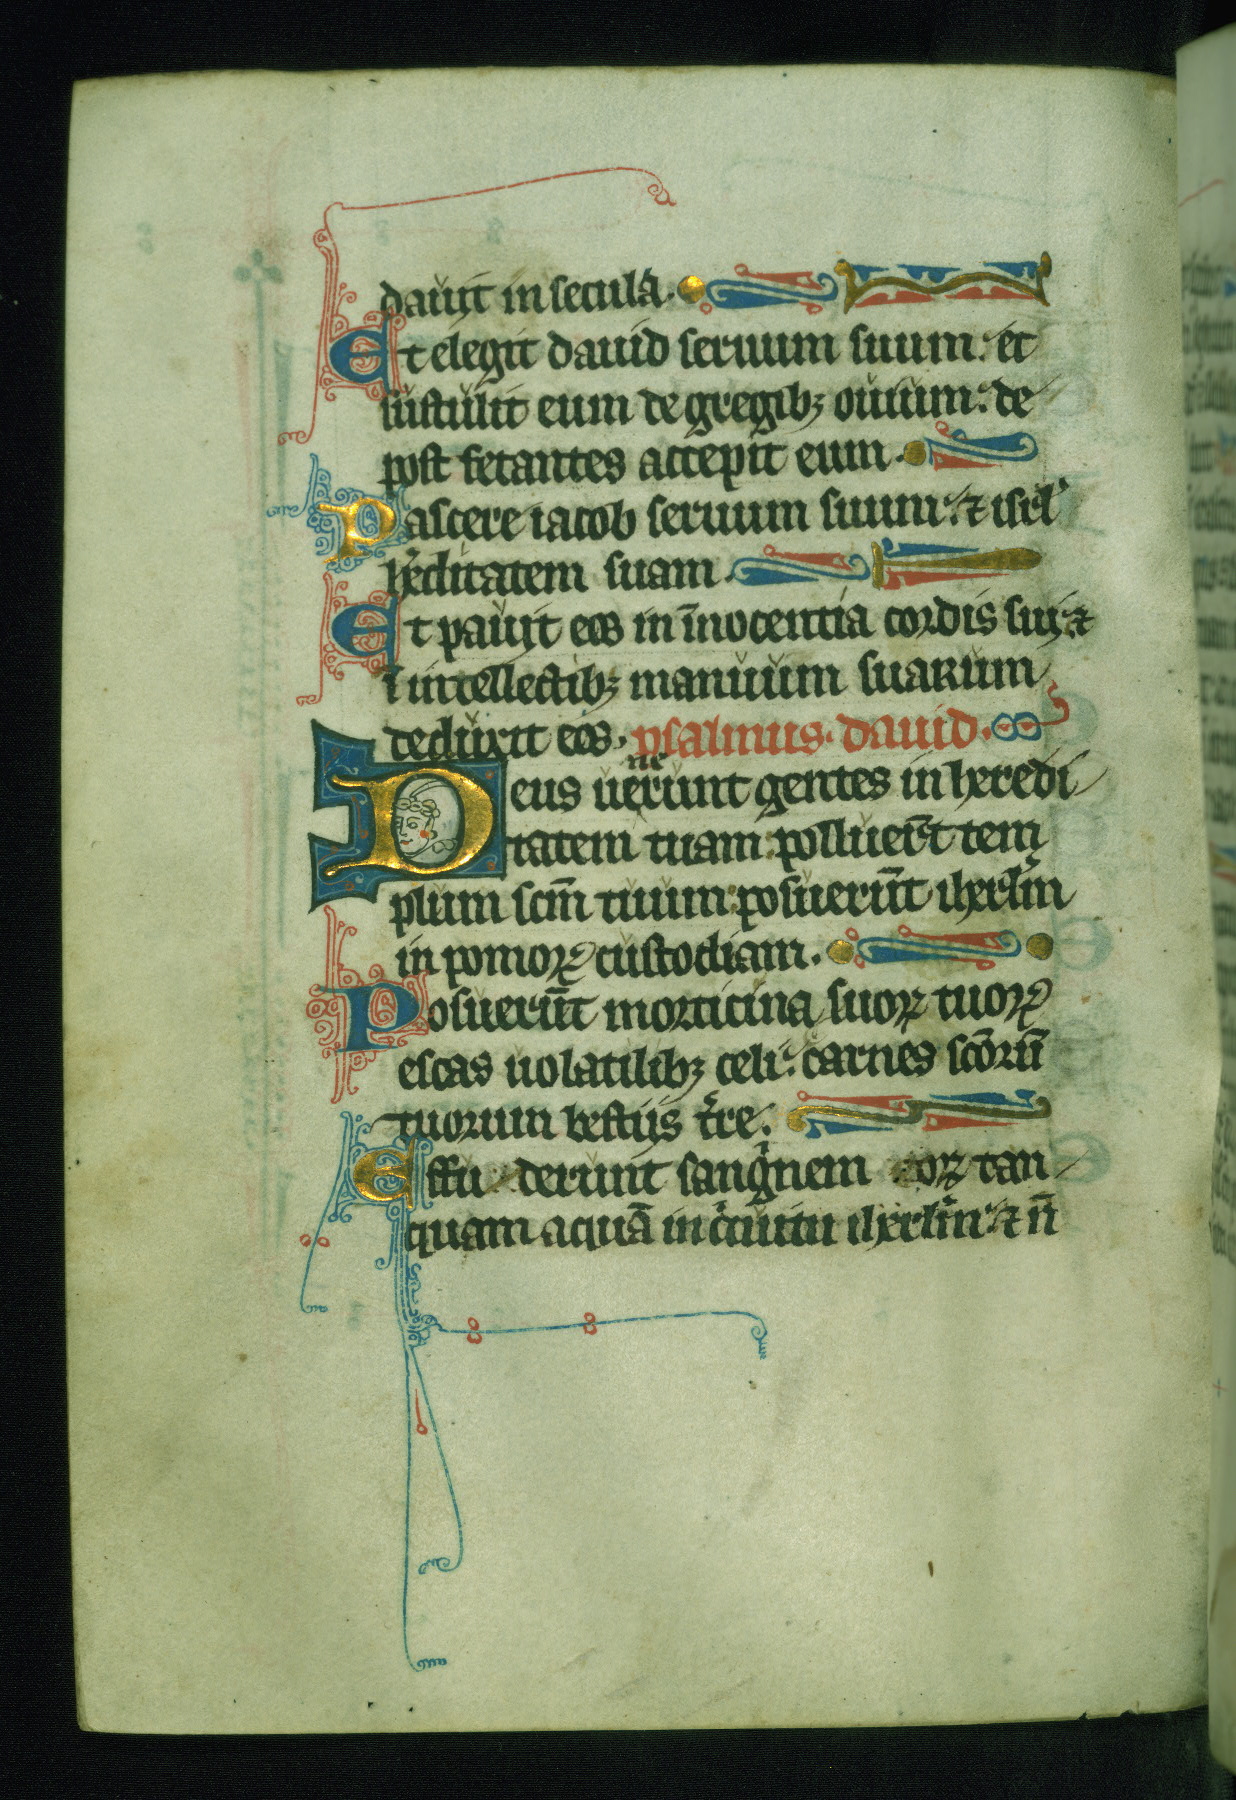 dauit in secula.
Et elegit dauid seruum suum. et
sustulit eum de gregibꝫ ouium: de
post fetantes accepit eum.
Pascere iacob seruum suum: ⁊ isrl̓
h̓editatem suam.
Et pauit eos in īnocentia cordis sui: ⁊
ī intellectibꝫ manuum suarum
deduxit eos. psalmus. dauid.
ne
Deus uerunt gentes in heredi
tatem tuam: polluer̄t tem
plum scm̄ tuum: posuerūt iherlm̄
in pomoꝝ custodiam.
Posuerūt morticina suoꝝ tuoꝝ
escas uolatilibꝫ celi: carnes scōrū
tuorum bestijs t̓re.
Effu derunt sangⁱnem oꝝ tan
quam aquā in cⁱcuitu iherlm̄: ⁊ n̄